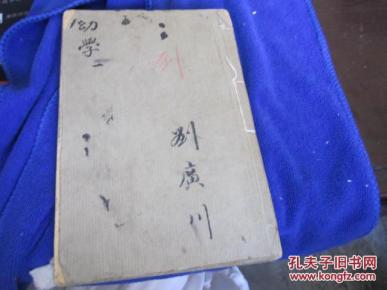 幼學二
刘
劉廣川
孔夫子旧书网
www.kongfz.com